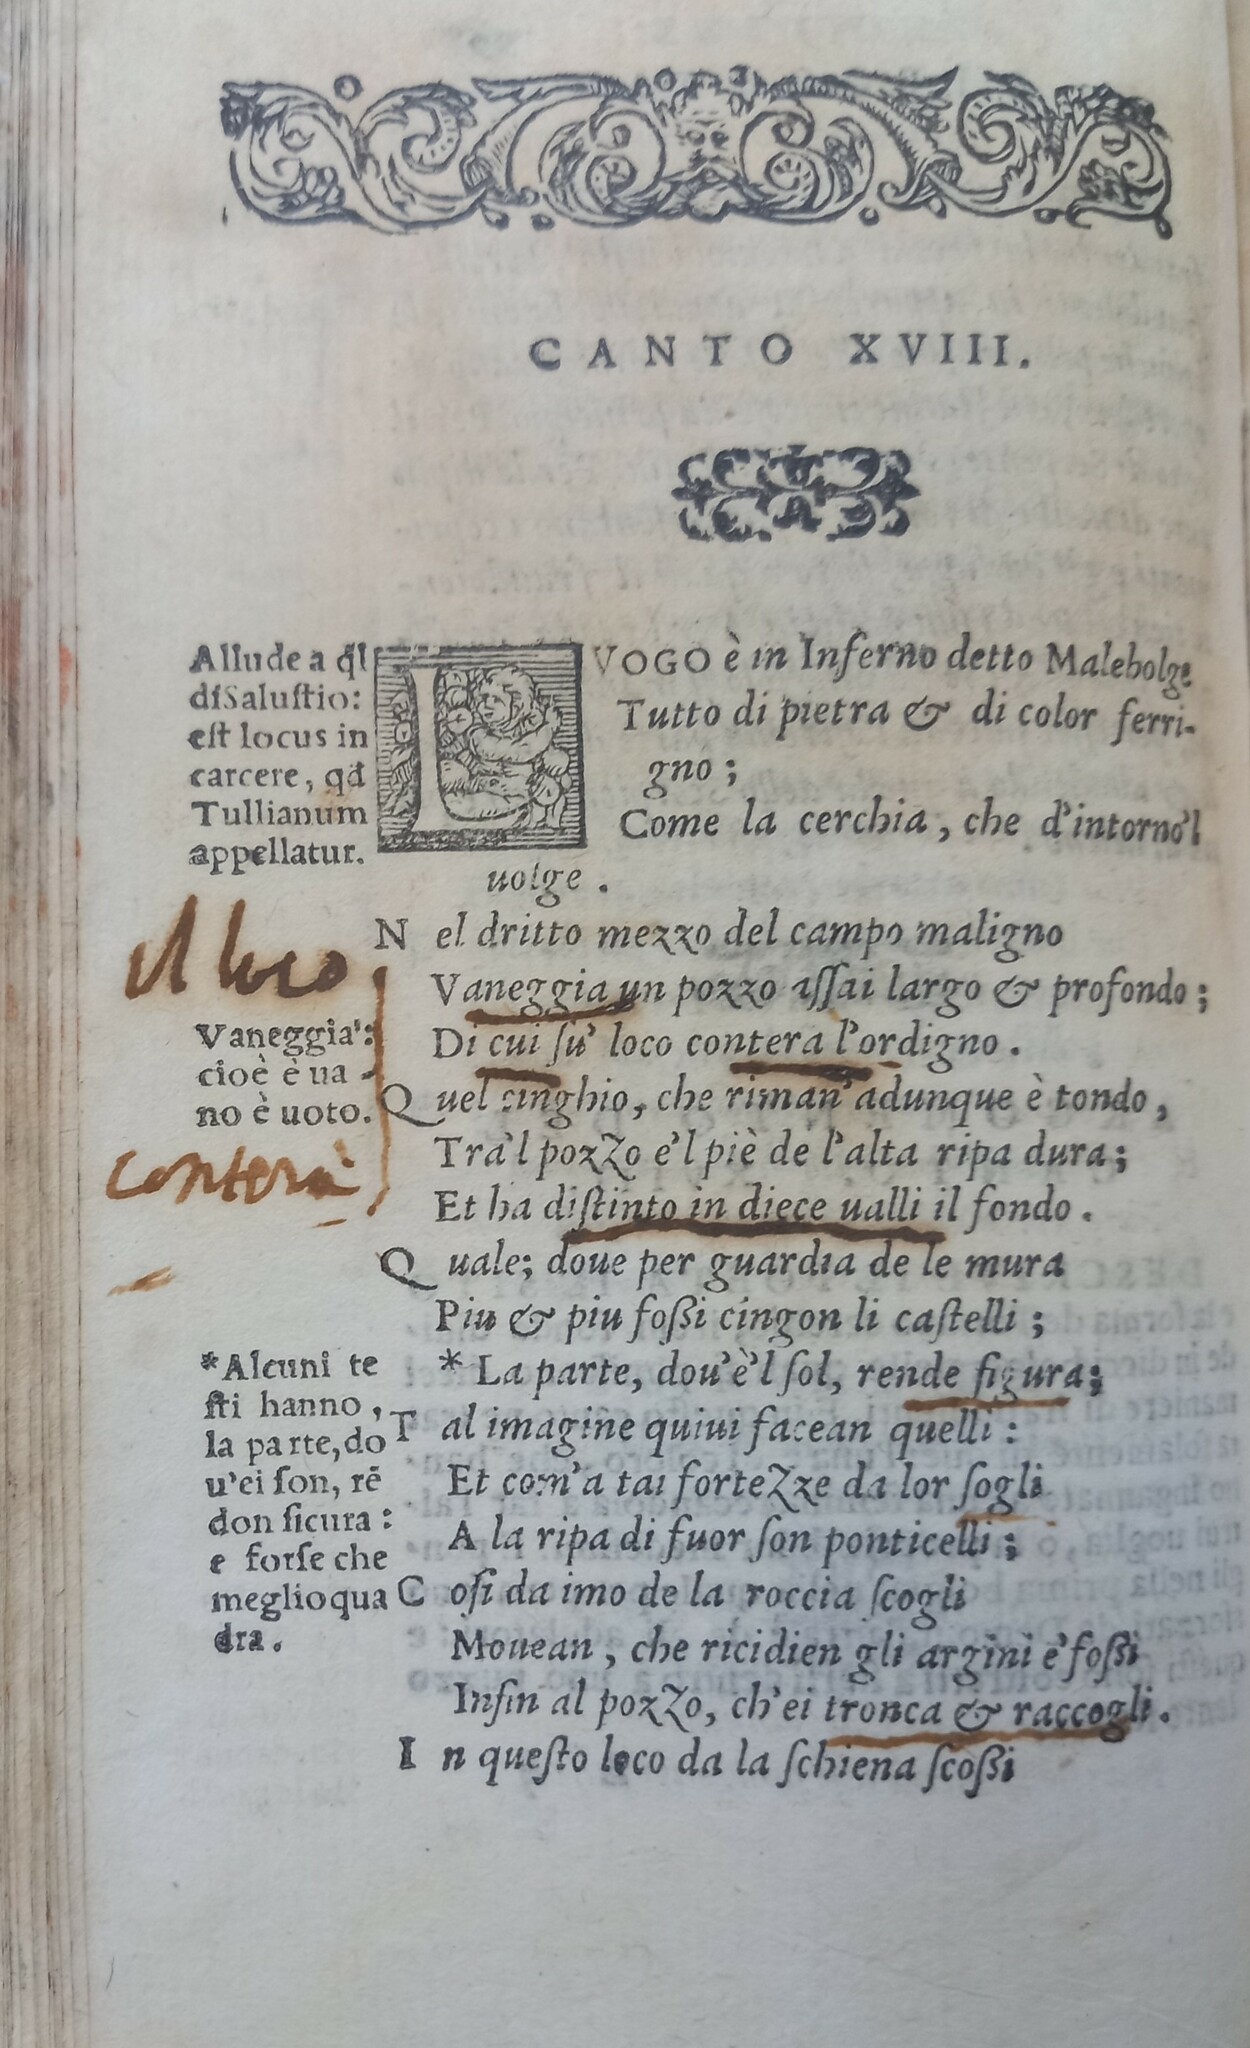 CANTO XVIII.
Allude a ql̃
di Salustio:
est locus in
carcere, qd̃
Tullianum
appellatur.
LVOGO è in Inferno detto Malebolge
Tutto di pietra & di color ferri-
gno;
Come la cerchia, che d'intorno'l
uolge.
Nel dritto mezzo del campo maligno
Vaneggia un pozzo assai largo & profondo;
Di cui su' loco contera l'ordigno.
Quel cinghio, che riman' adunque è tondo,
Tra'l pozzo e'l piè de l'alta ripa dura;
Et ha distinto in diece ualli il fondo.
Quale; doue per guardia de le mura
Piu & piu fossi cingon li castelli;
* La parte, dou'è'l sol, rende figura;
Tal imagine quiui facean quelli:
Et com'a tai fortezze da lor sogli
A la ripa di fuor son ponticelli;
Cosi da imo de la roccia scogli
Mouean, che ricidien gli argini e' fossi
Insin al pozzo, ch'ei tronca & raccogli.
In questo loco da la schiena scossi
il loco
Vaneggia':
cioè è ua-
no è uoto.
conterà
*Alcuni te
sti hanno,
la parte, do
u'ei son, rẽ
don sicura:
e forse che
meglio qua
dra.